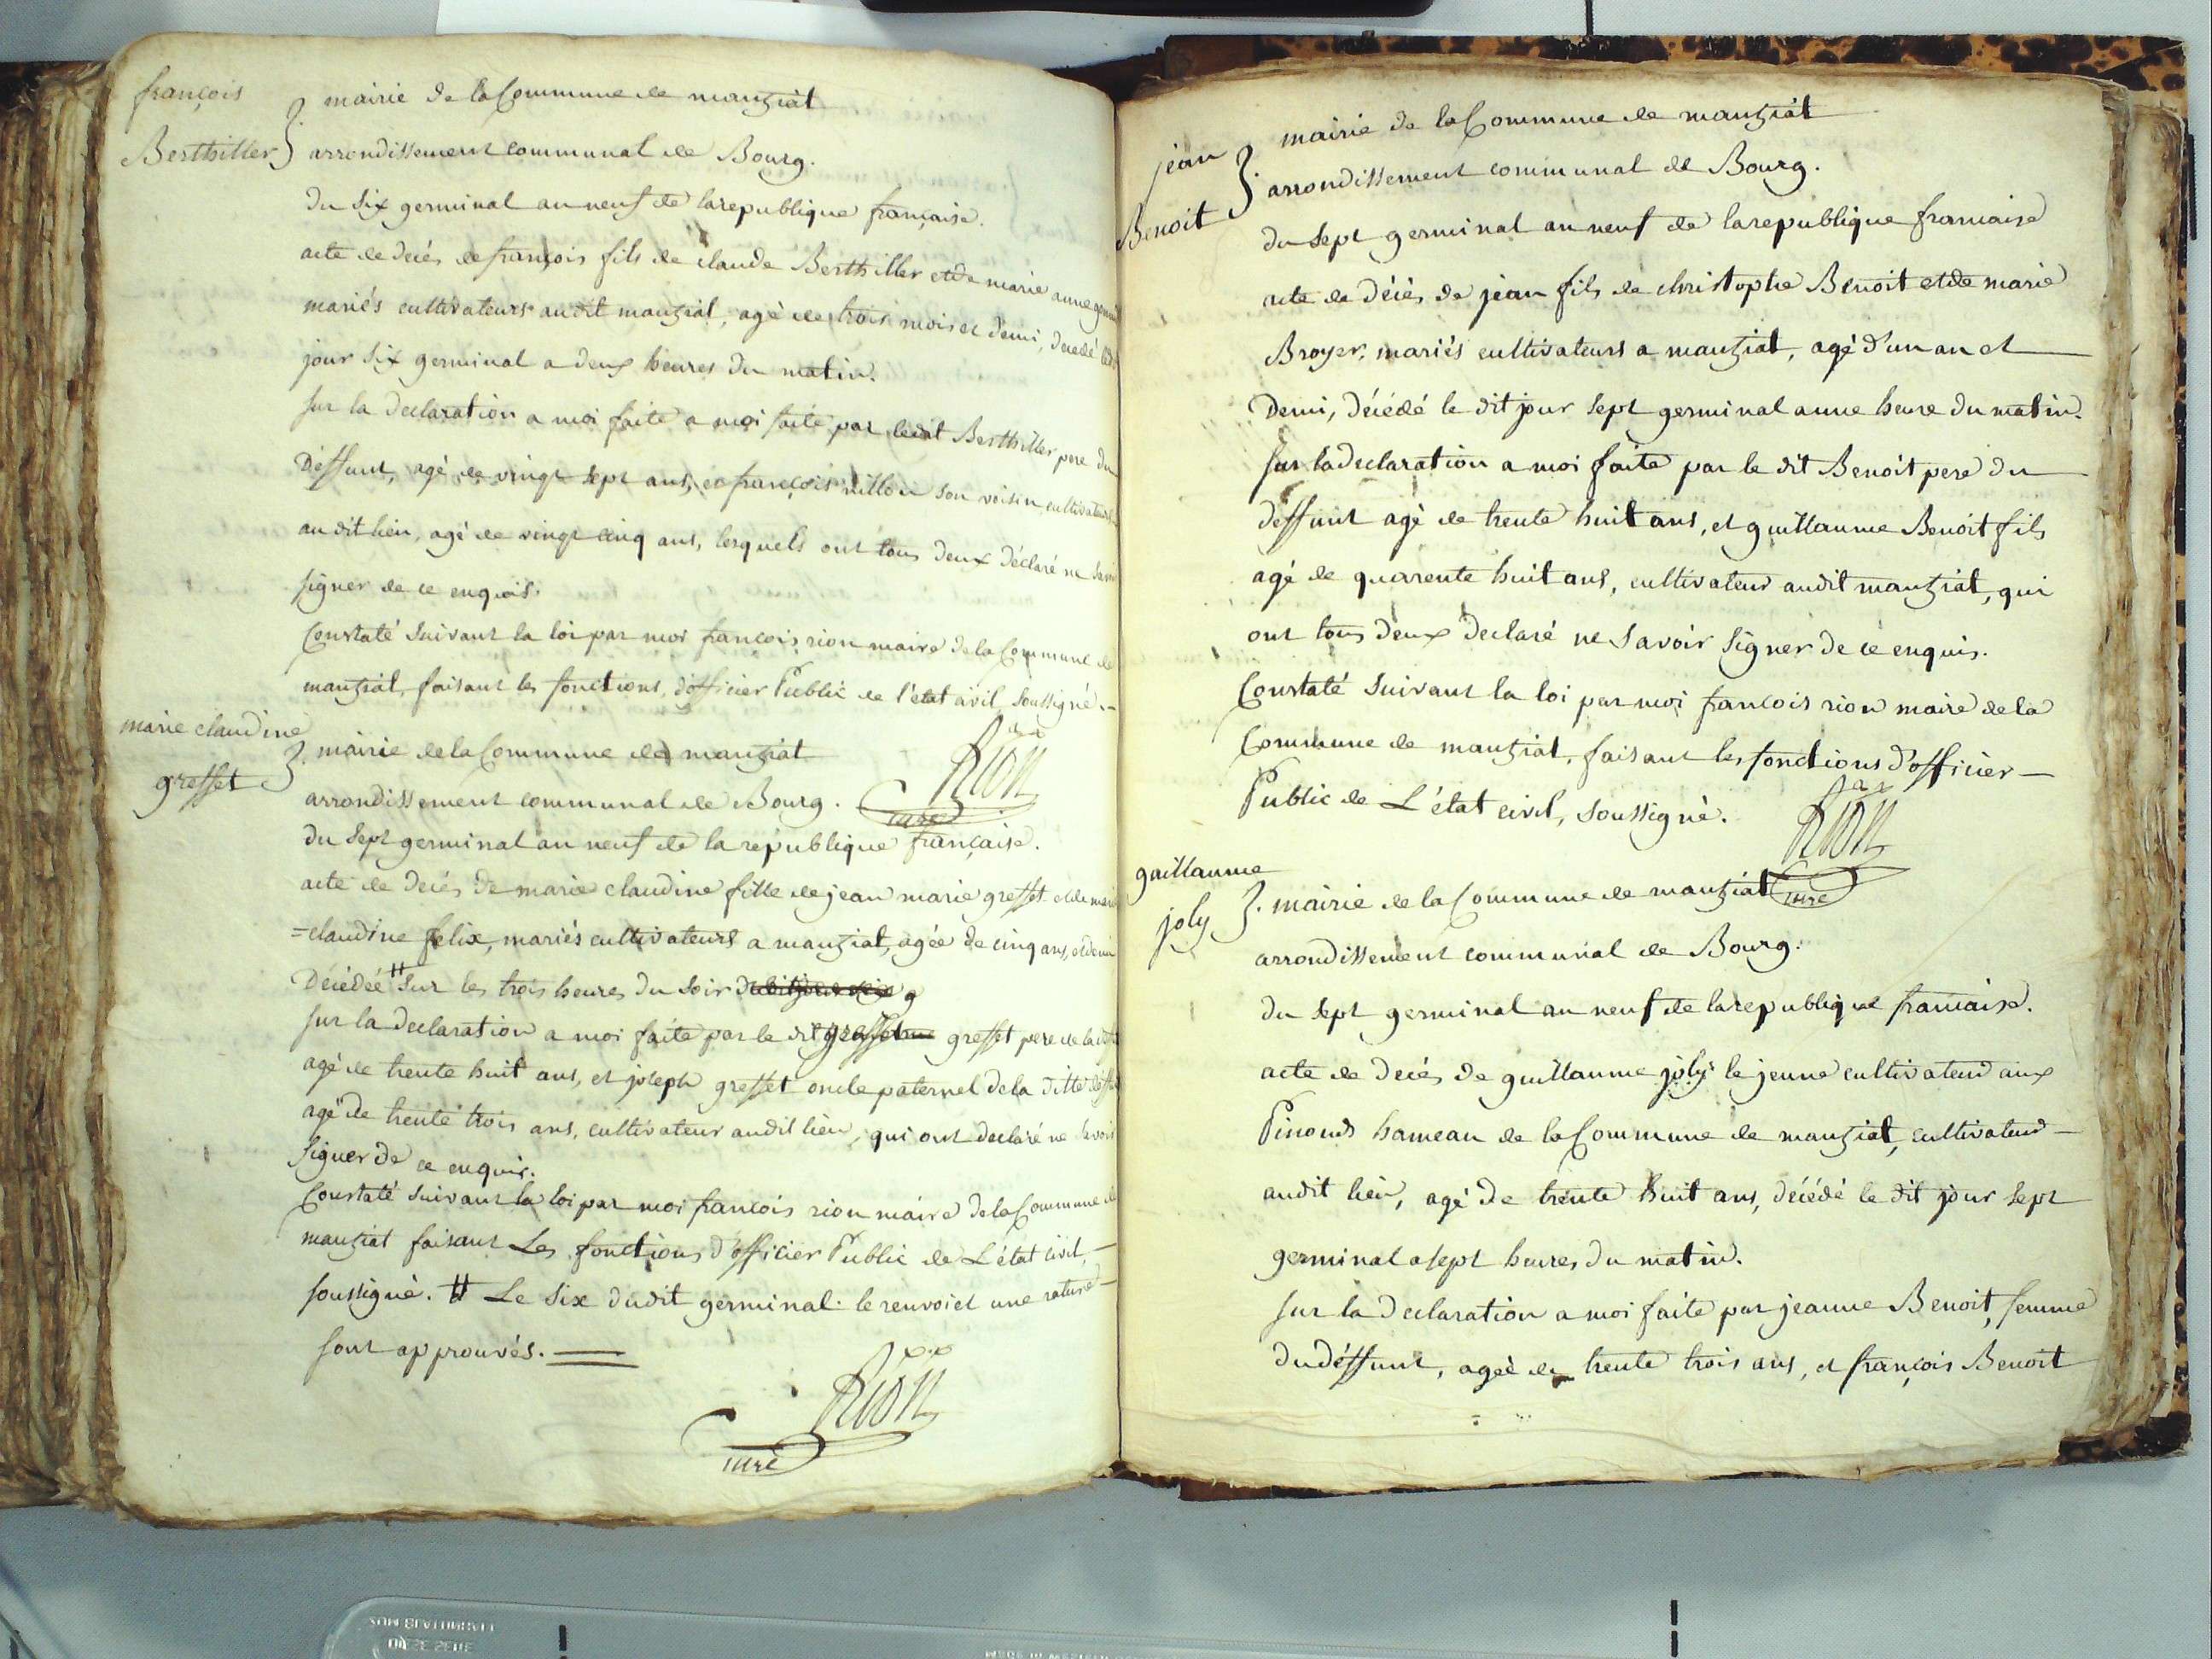 françois
Berthiller
mairie de la Commune de manziat
arrondissement communal de Bourg.
du six germinal an neuf de la republique française.
acte de decés de françois fils de claude Berthiller et de marie anne
mariés cultivateurs audit manziat, agé de trois mois et demi, decedé
jour six germinal a deux heures du matin.
sur la declaration a moi faite a moi faite par ledit Berthiller pere du
deffunt, agé de vingt sept ans, et françois nillon son voisin cultivateur
au dit lieu, agé de vingt cinq ans, lesquels ont tous deux déclaré ne
signer de ce enquis.
Constaté suivant la loi par moi françois rion maire de la Commune de
manziat, faisant les fonctions, d'officier Public de l'état civil, soussigné. —
Rion
mre
marie claudine
gresset
mairie de la Commune de manziat
arrondissement communal de Bourg.
du sept germinal an neuf de la republique française.
acte de decés de marie claudine fille de jean marie gresset et de marie
=claudine felix, mariés cultivateurs a manziat, agée de cinq ans, et demi
Décédée # sur les trois heures du soir
sur la declaration a moi faite par le dit gresset pere de la
agé de trente huit ans, et joseph gresset oncle paternel de la ditte
agé de trente trois ans, cultivateur audit lieu, qui ont declaré ne savoir
signer de ce enquis.
Constaté suivant la loi par moi françois rion maire de la Commune de
manziat faisant Les fonctions d'officier Public de L'état civil, —
soussigné. # Le six dudit germinal. le renvoi et une rature —
sont approuvés.
Rion
mre
jean
Benoit
mairie de la Commune de manziat
arrondissement communal de Bourg.
du sept germinal an neuf de la republique francaise
acte de décés de jean fils de christophe Benoit et de marie
Broyer, mariés cultivateurs a manziat, agé d'un an et —
Demi, décédé le dit jour sept germinal a une heure du matin.
sur la declaration a moi faite par le dit Benoit pere du —
deffunt agé de trente huit ans, et guillaume Benoit fils
agé de quarente huit ans, cultivateur audit manziat, qui
ont tous deux declaré ne savoir signer de ce enquis.
Constaté suivant la loi par moi francois rion maire de la
Commune de manziat, faisant les fonctions d'officier —
Public de L'état civil, soussigné.
Rion
mre
guillaume
joly
mairie de la Commune de manziat
arrondissement communal de Bourg.
du sept germinal an neuf de la republique francaise.
acte de decés de guillaume joly le jeune cultivateur aux
Pinouds hameau de la Commune de manziat, cultivateur —
audit lieu, agé de trente huit ans, décédé le dit jour sept
germinal a sept heures du matin.
sur la declaration a moi faite par jeanne Benoit, femme
du déffunt, agée de trente trois ans, et françois Benoit